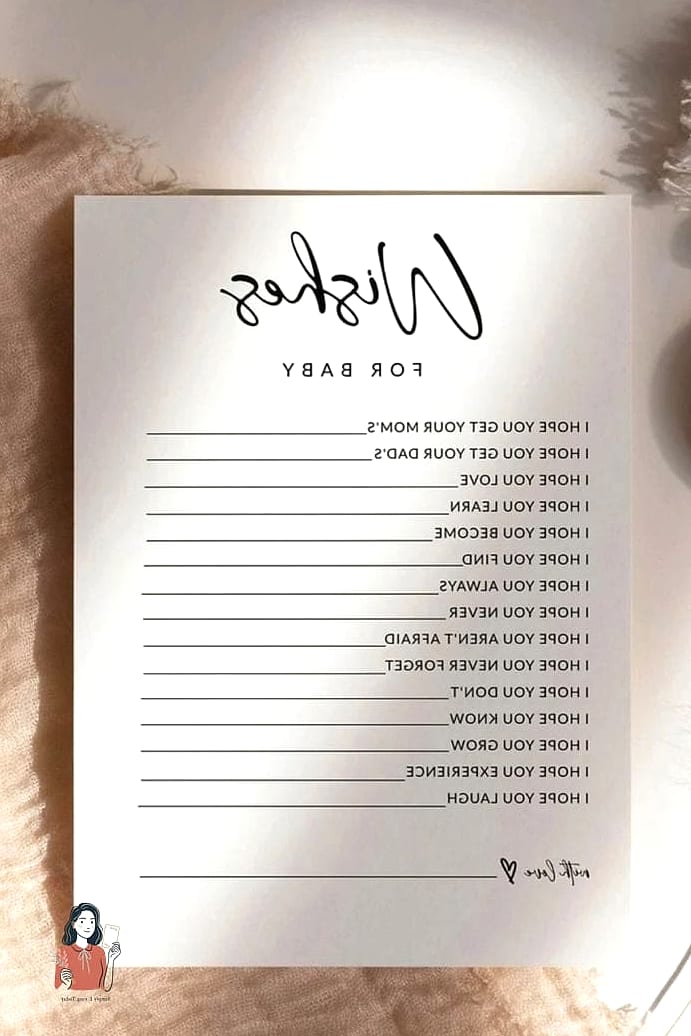 Wishes
FOR BABY
I HOPE YOU GET YOUR MOM'S
I HOPE YOU GET YOUR DAD'S
I HOPE YOU LOVE
I HOPE YOU LEARN
I HOPE YOU BECOME
I HOPE YOU FIND
I HOPE YOU ALWAYS
I HOPE YOU NEVER
I HOPE YOU AREN'T AFRAID
I HOPE YOU NEVER FORGET
I HOPE YOU DON'T
I HOPE YOU KNOW
I HOPE YOU GROW
I HOPE YOU EXPERIENCE
I HOPE YOU LAUGH
with love